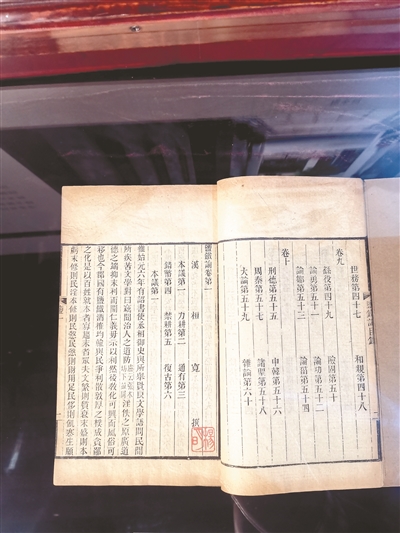 世務第四十七 和親第四十八
卷九
繇役第四十九 險固第五十
論勇第五十一 論功第五十二
論鄒第五十三 論菑第五十四
卷十
刑德第五十五 申韓第五十六
周秦第五十七 諸聖第五十八
大論第五十九 雜論第六十
鹽鐵論卷第一
漢 桓 寬 撰
本議第一 力耕第二 通有第三
錯幣第四 禁耕第五 復古第六
本議第一
惟始元六年有詔書使丞相御史與所舉賢良文學語問民間
所疾苦文學對曰竊聞治人之道防淫佚之原廣道
德之端抑末利而開仁義毋示以利然後教化可興而風俗可
移也今郡國有鹽鐵酒榷均輸與民爭利散敦厚之樸成貪鄙
之化是以百姓就本者寡趨末者眾夫文繁則質衰末盛則本
虧末修則民淫本修則民愨民愨則財用足民侈則饑寒生願